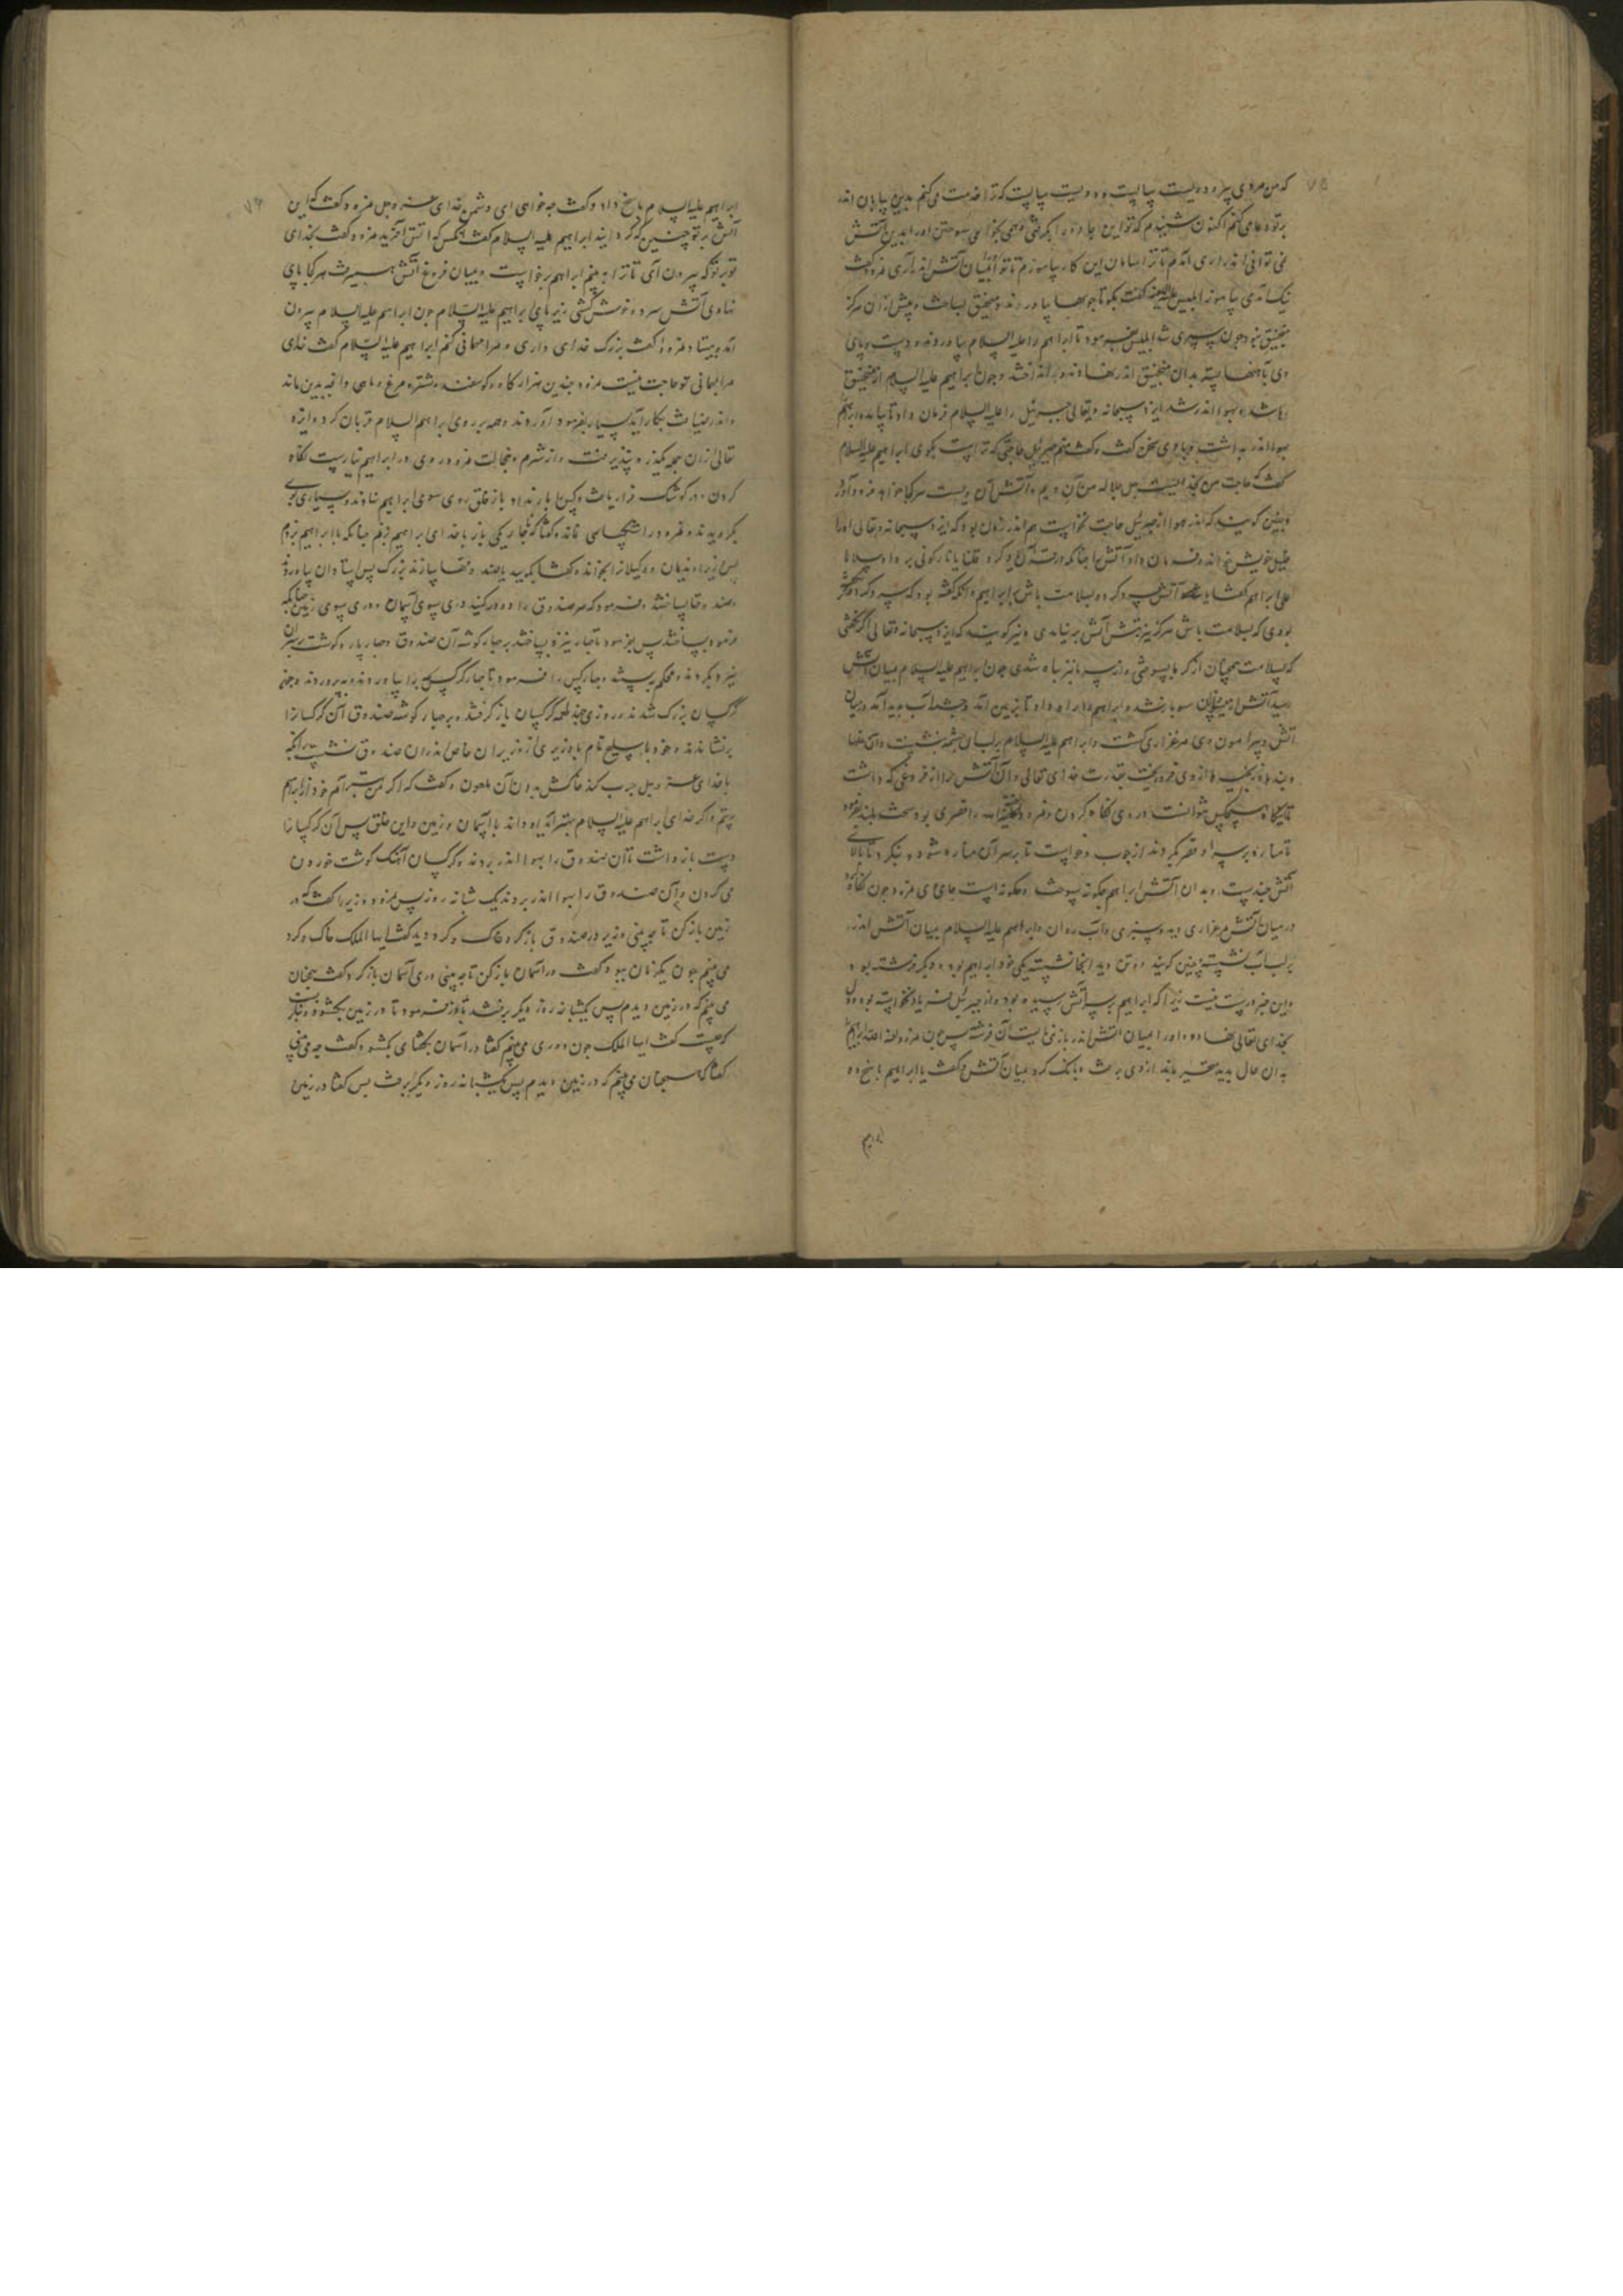 ۷۵
که من مردی پیرم و دویست سالست و دویست سالست که ترا خدمت می‌کنم بدین بیابان اندر
بر تو دعا می‌کنم اکنون شنیدم که تو این جادو را بگرفتی و همی بخواهی سوختن اورا بدین آتش
نمی‌توانی انداختن آمدم تا ترا سامان این کار بیاموزم تا تو بمیان آتش اندازی نمرود گفت
نیک آمدی بیاموز ابلیس علیه اللعنه گفت بگو تا چوبها بیاورند و منجنیق بساخت و پیش ازان هرگز
منجنیق نبود چون سپری شد ابلیس بفرمود تا ابراهیم را علیه السلام بیاوردند و دست و پای
وی با تنها بسته بدان منجنیق اندر نهادند و بینداختند و چون ابراهیم علیه السلام از منجنیق
رها شد و بهوا اندر شد ایزد سبحانه و تعالی جبرئیل را علیه السلام فرمان داد تا بیامد و ابراهیم
بهوا اندر بداشت و با وی سخن گفت و گفت منم جبرئیل حاجتی که تراست بگوی ابراهیم علیه السلام
گفت حاجت من بخدایست جل جلاله من آن ویم و آتش آن ویست هر کجا خواهد فرود آورد
و چنین گویند که اندر هوا از جبرئیل حاجت نخواست هم اندر زمان بود که ایزد سبحانه و تعالی اورا
خلیل خویش خواند و فرمان داد آتش را چنانکه در قرآن یاد کرد قلنا یا نار کونی بردا و سلاما
علی ابراهیم گفتا یا آتش سرد گرد و بسلامت باش بر ابراهیم و آنکه گفته بود که سرد گرد و اگر
بودی که بسلامت باش هرگز نیز تبش آتش برنیامدی و نیز گویند که ایزد سبحانه و تعالی اگر نگفتی
که بسلامت همچنان از گرما بسوختی و از سرما نیز تباه شدی چون ابراهیم علیه السلام بمیان آتش
رسید آتش از میان سو باز شد و ابراهیم را راه داد تا بزمین آمد و چشمه آب پدید آمد در میان
آتش و پیرامون وی مرغزاری گشت و ابراهیم علیه السلام بر لب آن چشمه بنشست و آن غلها
و بندها و زنجیرها از وی فرو ریخت بقدرت خدای تعالی و آن آتش را از فروغی که داشت
تا یکماه هیچکس نتوانست در وی نگاه کردن و نمرود لعنه الله را قصری بود سخت بلند بفرمود
تا مناره بر سر او قصر بکردند از چوب و خواست تا بر سر آن مناره شود و بنگرد تا بالای
آتش چندست و بدان آتش ابراهیم چگونه بسوخت و چگونه است جای وی نمرود چون نگاه کرد
در میان آتش مرغزاری دید و سبزی و آب روان و ابراهیم علیه السلام بمیان آتش اندر
بر لب آب نشسته و چنین گویند دو تن دید آنجا نشسته یکی خود ابراهیم بود و دیگر فرشته بود
و این خبر درست نیست زیرا که ابراهیم بر سر آتش رسیده بود و از جبرئیل فریاد نخواسته بود و دل
بخدای تعالی نهاده و اورا بمیان آتش اندر بازنمی‌بایست آن فرشته پس چون نمرود لعنه الله ابراهیم
بدان حال بدید متحیر بماند از وی برخاست و بانگ کرد بمیان آتش و گفت یا ابراهیم پاسخ ده
ابراهیم
۷۶
ابراهیم علیه السلام پاسخ داد و گفت چه خواهی ای دشمن خدای عز و جل نمرود گفت که این
آتش بر تو چنین که گردانید ابراهیم علیه السلام گفت آنکس که آتش آفرید نمرود گفت بخدای
تو بر تو که بیرون آی تا ترا ببینم ابراهیم برخاست و بمیان فروغ آتش همی‌رفت هر کجا پای
نهادی آتش سرد و خوش گشتی زیر پای ابراهیم علیه السلام چون ابراهیم علیه السلام بیرون
آمد و بیستاد نمرود گفت بزرگ خدای داری و من اورا مهمانی کنم ابراهیم علیه السلام گفت خدای
مرا بمهمانی تو حاجت نیست نمرود چندین هزار گاو و گوسفند و شتر و مرغ و ماهی و آنچه بدین ماند
و اندر ضیافت بکار آید بسیار بفرمود آوردند و همه بر روی ابراهیم السلام قربان کرد و ایزد
تعالی ازان همه یکذره نپذیرفت و از شرم و خجالت نمرود روی در ابراهیم نیارست نگاه
کردن و در کوشک قرار یافت و کس را بار نداد باز خلق روی سوی ابراهیم نهادند و بسیاری بوی
بگرویدند و نمرود را هیچ پاسی نماند و گفتا که ناچار یکی باز با خدای ابراهیم بزنم چنانکه با ابراهیم بزدم
پس وزیر و ندیمان و وکیلان را بخواند و گفتا
صندوقها بساختند و بفرمود که هر صندوق را دو در کنید دری سوی آسمان و دری سوی زمین چنانکه
فرمود بساختند پس بفرمود تا چهار نیزه بساختند بر چهار گوشه آن صندوق و چهار پاره گوشت بر سر آن
نیزه بکردند و محکم ببستند و چهار کس را فرمود تا چهار کرگس را بیاوردند و بپروردند و چون
کرگسان بزرگ شدند روزی چند طعمه کرگسان باز گرفتند و بر چهار گوشه صندوق آن کرگسان را
برنشاندند و خود با سلیح تمام با وزیری از وزیران خاص اندران صندوق نشست برانکه
با خدای عز و جل حرب کند خاکش بدهان آن ملعون و گفت که اگر من بهتر آیم خود از ابراهیم
برستم و اگر خدای ابراهیم علیه السلام بهتر آید او داند با آسمان و زمین و این خلق پس آن کرگسان را
دست بازداشت تا آن صندوق را بهوا اندر بردند و کرگسان آهنگ گوشت خوردن
می‌کردن و آن صندوق را بهوا اندر بردند یک شبانه روز پس نمرود وزیر را گفت که در
زمین باز کن تا چه بینی وزیر در صندوق باز کرد و خاک و کرد دید گفت ایها الملک خاک و کرد
می‌بینم چون یکزمان ببود گفت در آسمان باز کن تا چه بینی دری آسمان باز کرد و گفت همچنان
می‌بینم که در زمین دیدم پس یکشبانه روز دیگر برفتند تا وزیر را فرمود تا در زمین بگشود و بنگریست
که چیست گفت ایها الملک چون دودی می‌بینم گفتا در آسمان بگشای بگشود و گفت چه می‌بینی
گفتا که همچنان می‌بینم که در زمین دیدم پس یکشبانه روز دیگر برفت پس گفتا در زمین